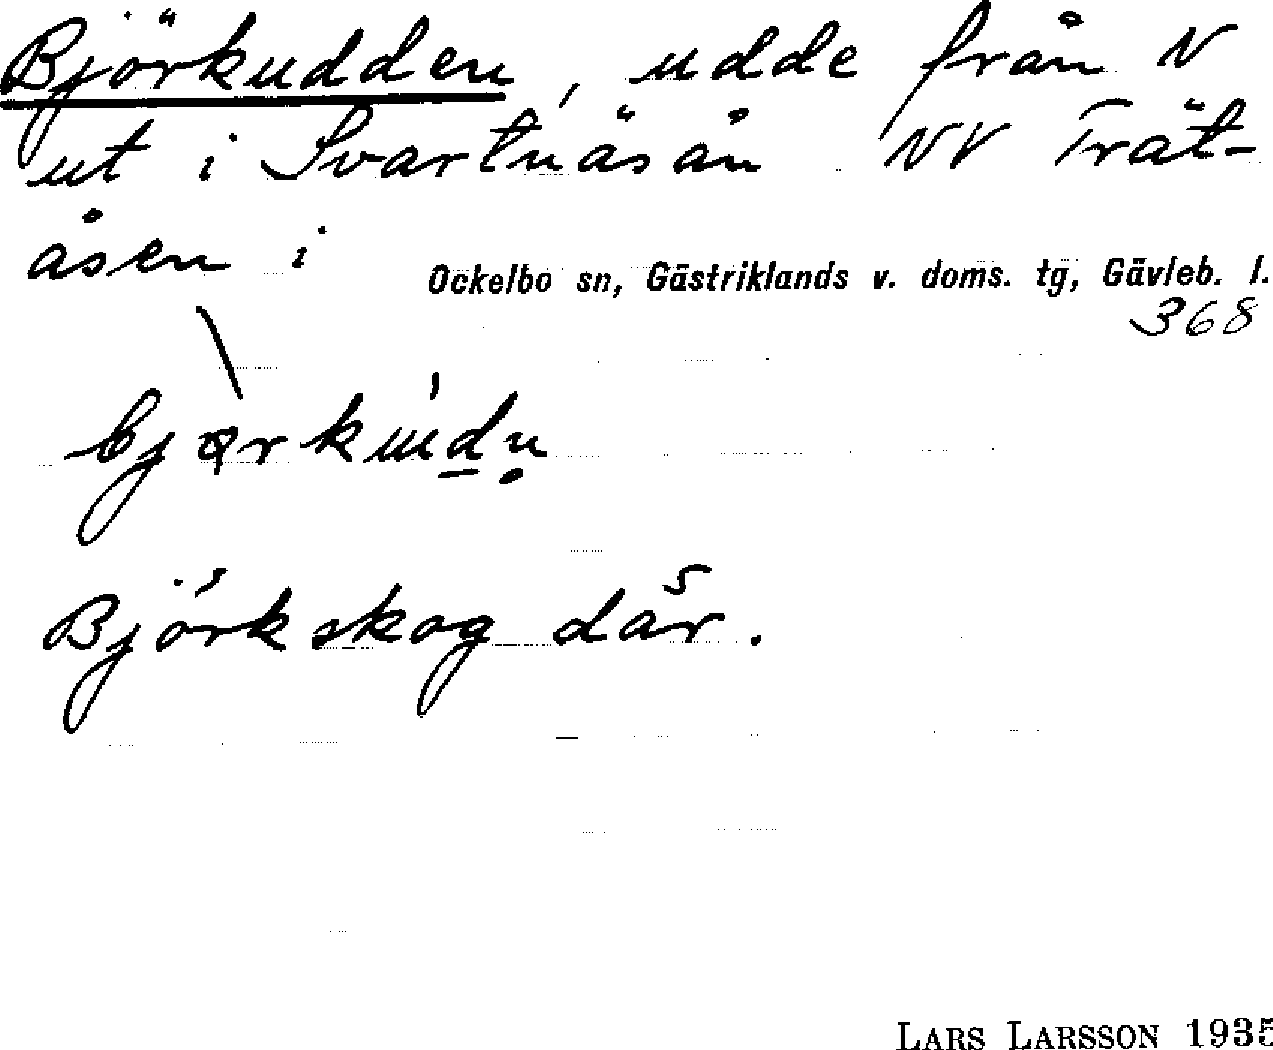 Björkudden, udde från N
ut i Svartnäsån NV Trät-
åsen i
Ockelbo sn, Gästriklands v. doms. tg, Gävleb. l.
368
Björkskog där.
LARS LARSSON 1935